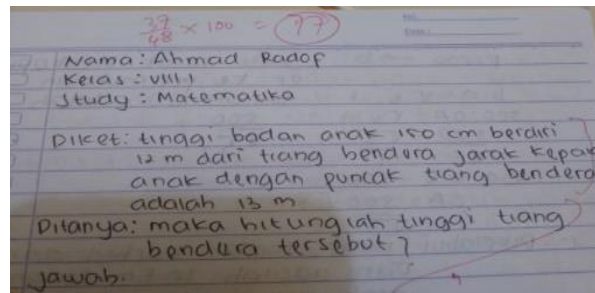 37/48 × 100 = 77
Nama : Ahmad Radof
Kelas : VIII.1
Study : Matematika
Diket : tinggi badan anak 150 cm berdiri
12 m dari tiang bendera jarak kepala
anak dengan puncak tiang bendera
adalah 13 m
Ditanya : maka hitunglah tinggi tiang
bendera tersebut ?
Jawab.